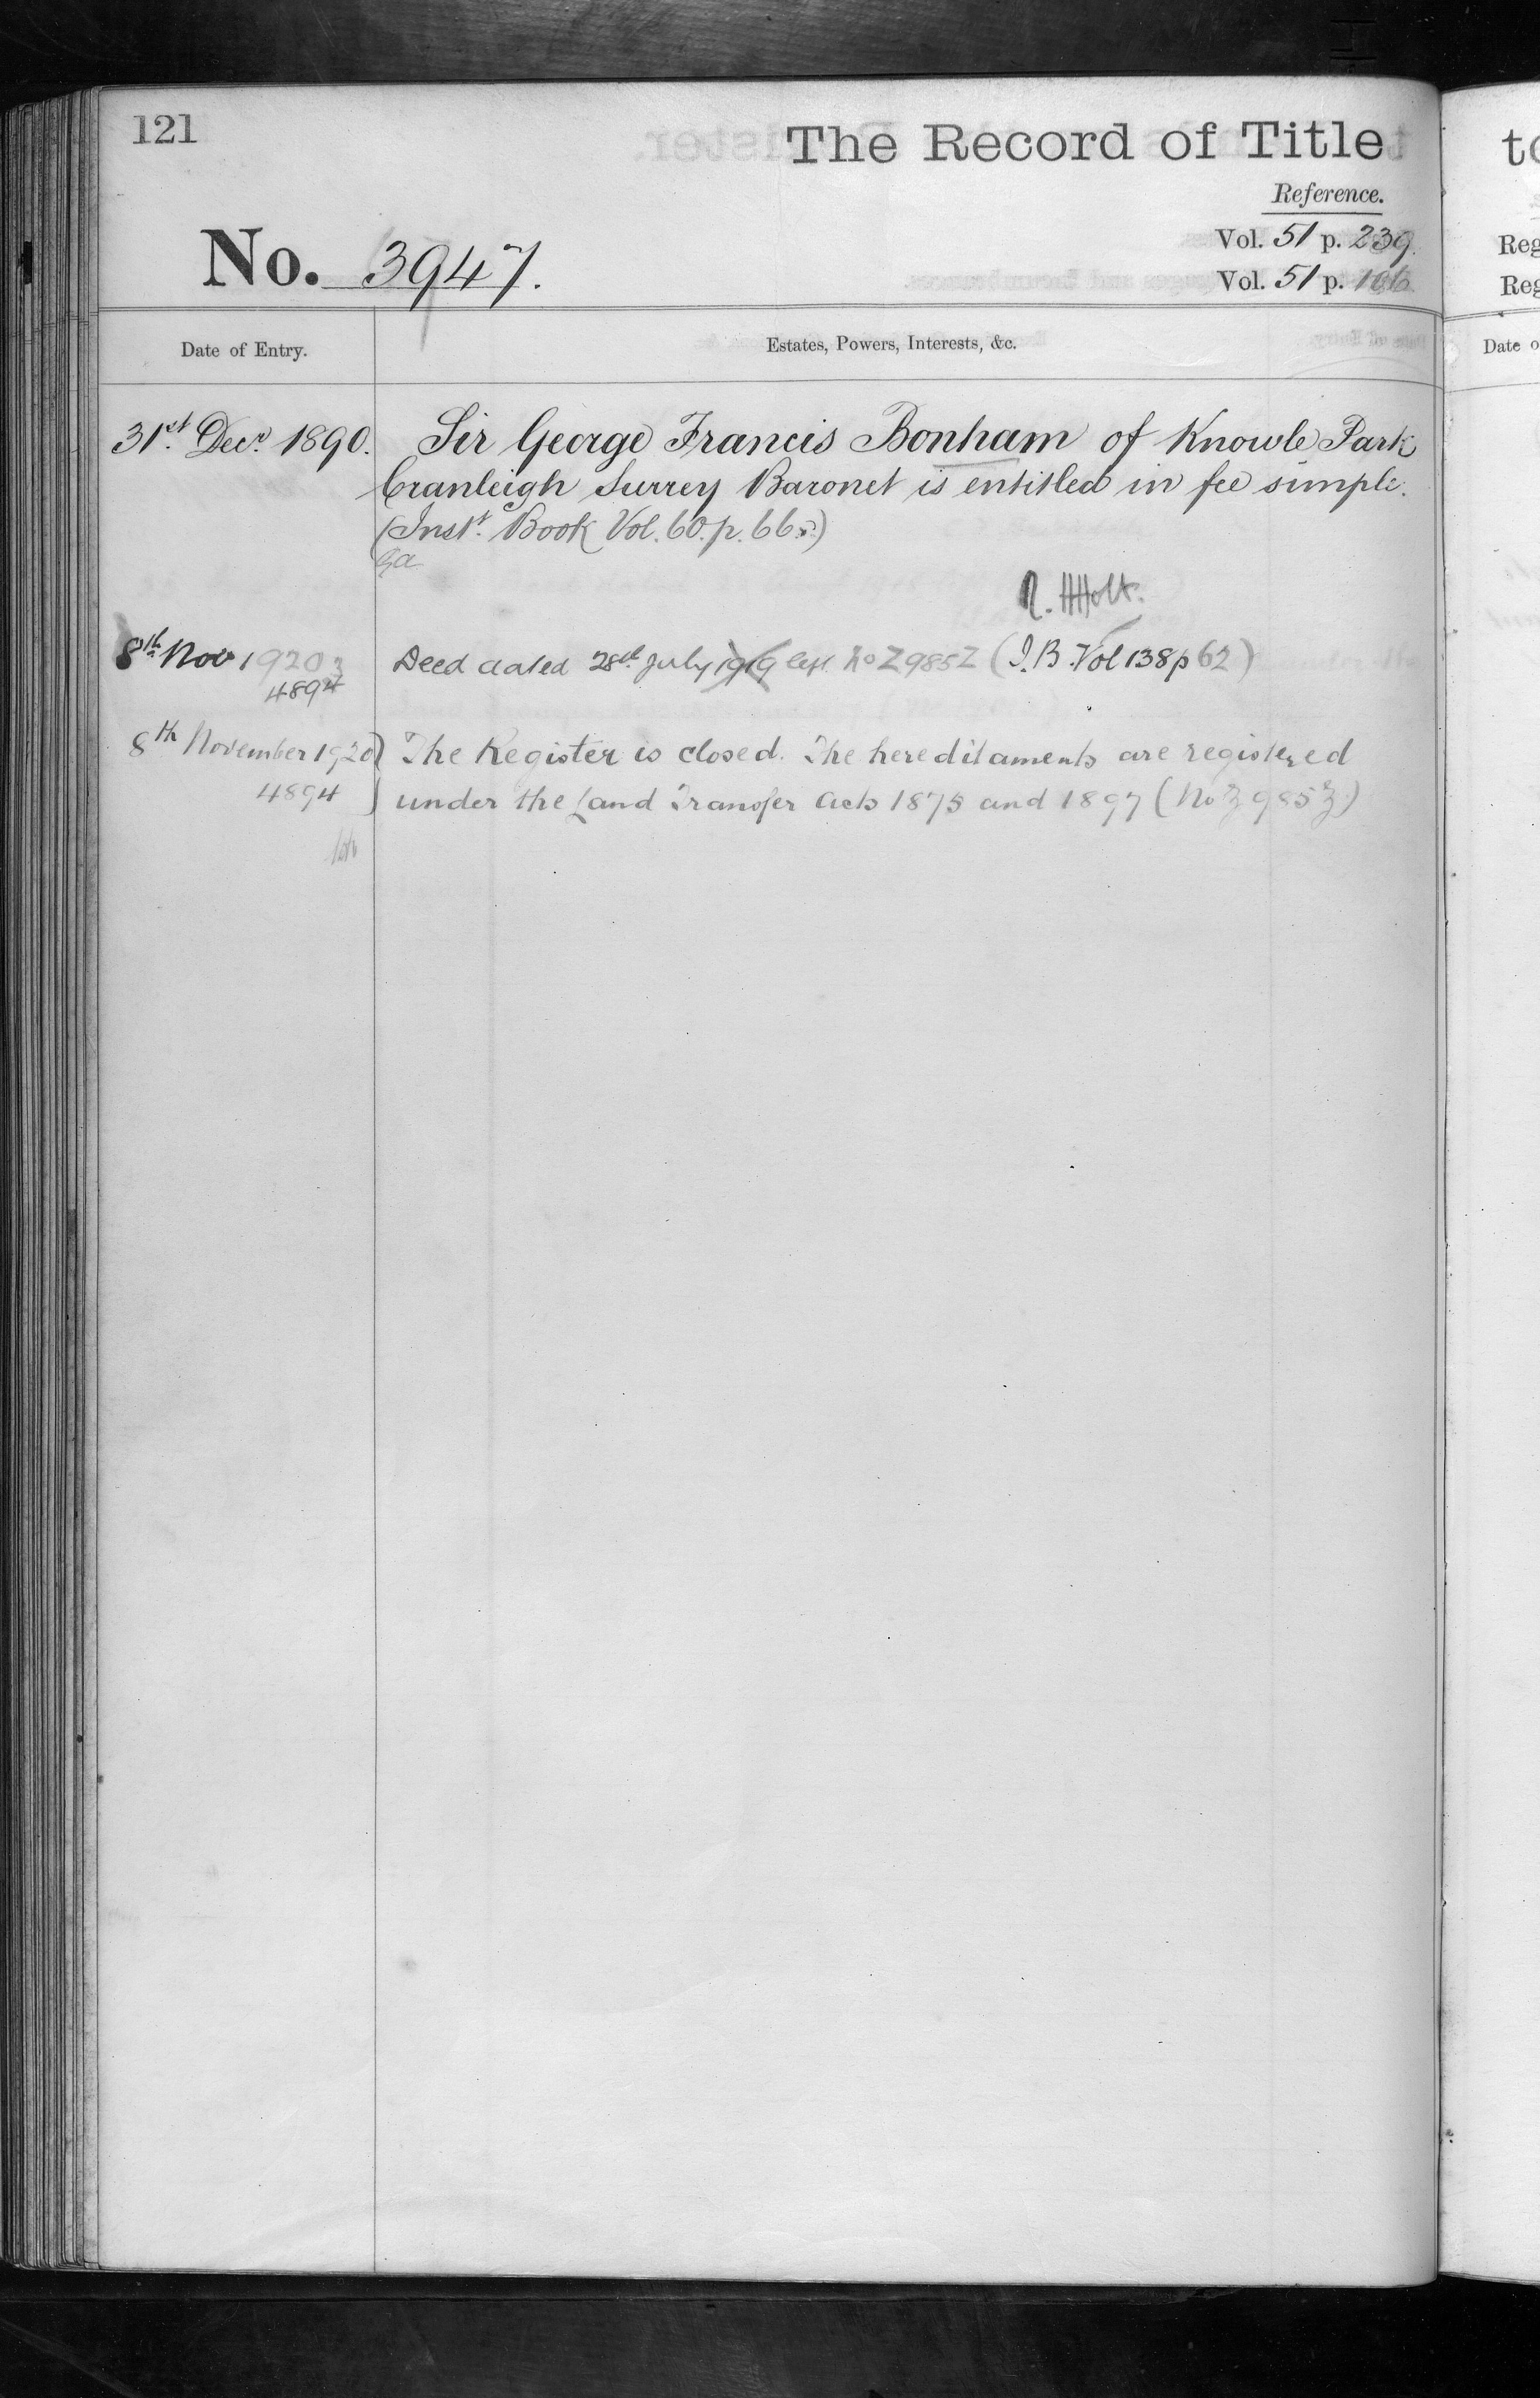 121
The Record of Title
Reference.
No. 3947.
Vol. 51 p. 239.
Vol. 51 p. 106
Date of Entry.
Estates, Powers, Interests, &c.
31st. Decr. 1890. Sir George Francis Bonham of Knowle Park
Cranleigh Surrey Baronet is entitled in fee simple.
(Inst. Book Vol. 60. p. 66.)
R. HHolt.
8th Nov 1920 Deed dated 28th July 1919 No Z985Z (I.B. Vol 138 p 62)
4894
8th November 1920) The Register is closed. The hereditaments are registered
4894 ) under the Land Transfer Acts 1875 and 1897 (No Z985Z)
to
Reg
Reg
Date o